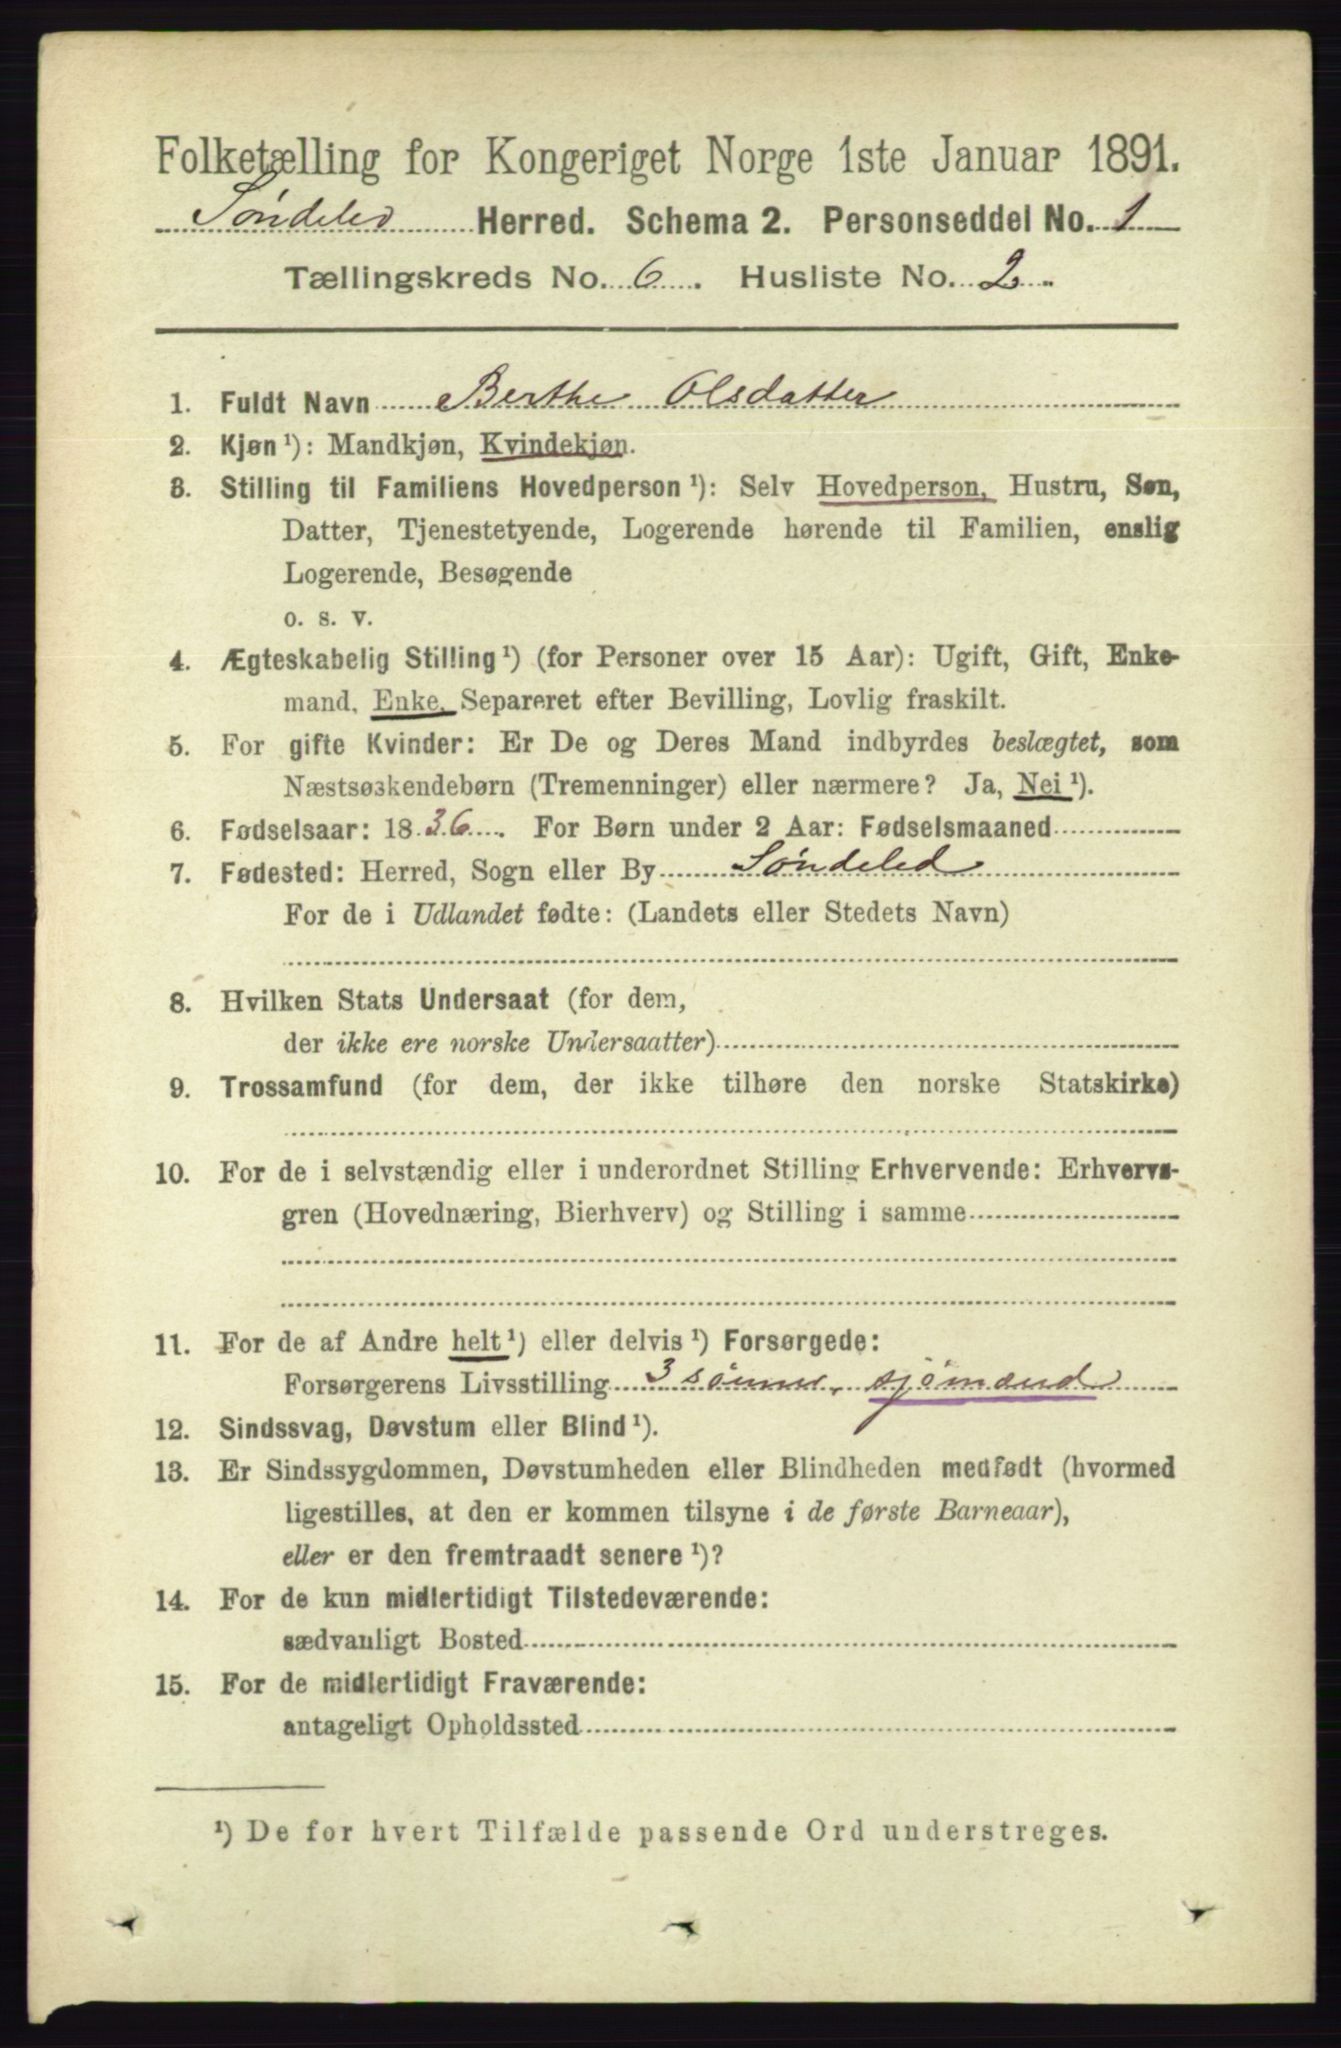 Folketælling for Kongeriget Norge 1ste Januar 1891.
Søndeled Herred. Schema 2. Personseddel No. 1
Tællingskreds No. 6. Husliste No. 2.
1. Fuldt Navn Berthe Olsdatter
2. Kjøn¹): Mandkjøn, Kvindekjøn.
3. Stilling til Familiens Hovedperson¹): Selv Hovedperson, Hustru, Søn,
Datter, Tjenestetyende, Logerende hørende til Familien, enslig
Logerende, Besøgende
o. s. v.
4. Ægteskabelig Stilling¹) (for Personer over 15 Aar): Ugift, Gift, Enke-
mand, Enke, Separeret efter Bevilling, Lovlig fraskilt.
5. For gifte Kvinder: Er De og Deres Mand indbyrdes beslægtet, som
Næstsøskendebørn (Tremenninger) eller nærmere? Ja, Nei¹).
6. Fødselsaar: 1836. For Børn under 2 Aar: Fødselsmaaned
7. Fødested: Herred, Sogn eller By Søndeled
For de i Udlandet fødte: (Landets eller Stedets Navn)
8. Hvilken Stats Undersaat (for dem,
der ikke ere norske Undersaatter)
9. Trossamfund (for dem, der ikke tilhøre den norske Statskirke)
10. For de i selvstændig eller i underordnet Stilling Erhvervende: Erhvervs-
gren (Hovednæring, Bierhverv) og Stilling i samme
11. For de af Andre helt¹) eller delvis¹) Forsørgede:
Forsørgerens Livsstilling 3 sønner, sjömænd
12. Sindssvag, Døvstum eller Blind¹).
13. Er Sindssygdommen, Døvstumheden eller Blindheden medfødt (hvormed
ligestilles, at den er kommen tilsyne i de første Barneaar),
eller er den fremtraadt senere¹)?
14. For de kun midlertidigt Tilstedeværende:
sædvanligt Bosted
15. For de midlertidigt Fraværende:
antageligt Opholdssted
¹) De for hvert Tilfælde passende Ord understreges.